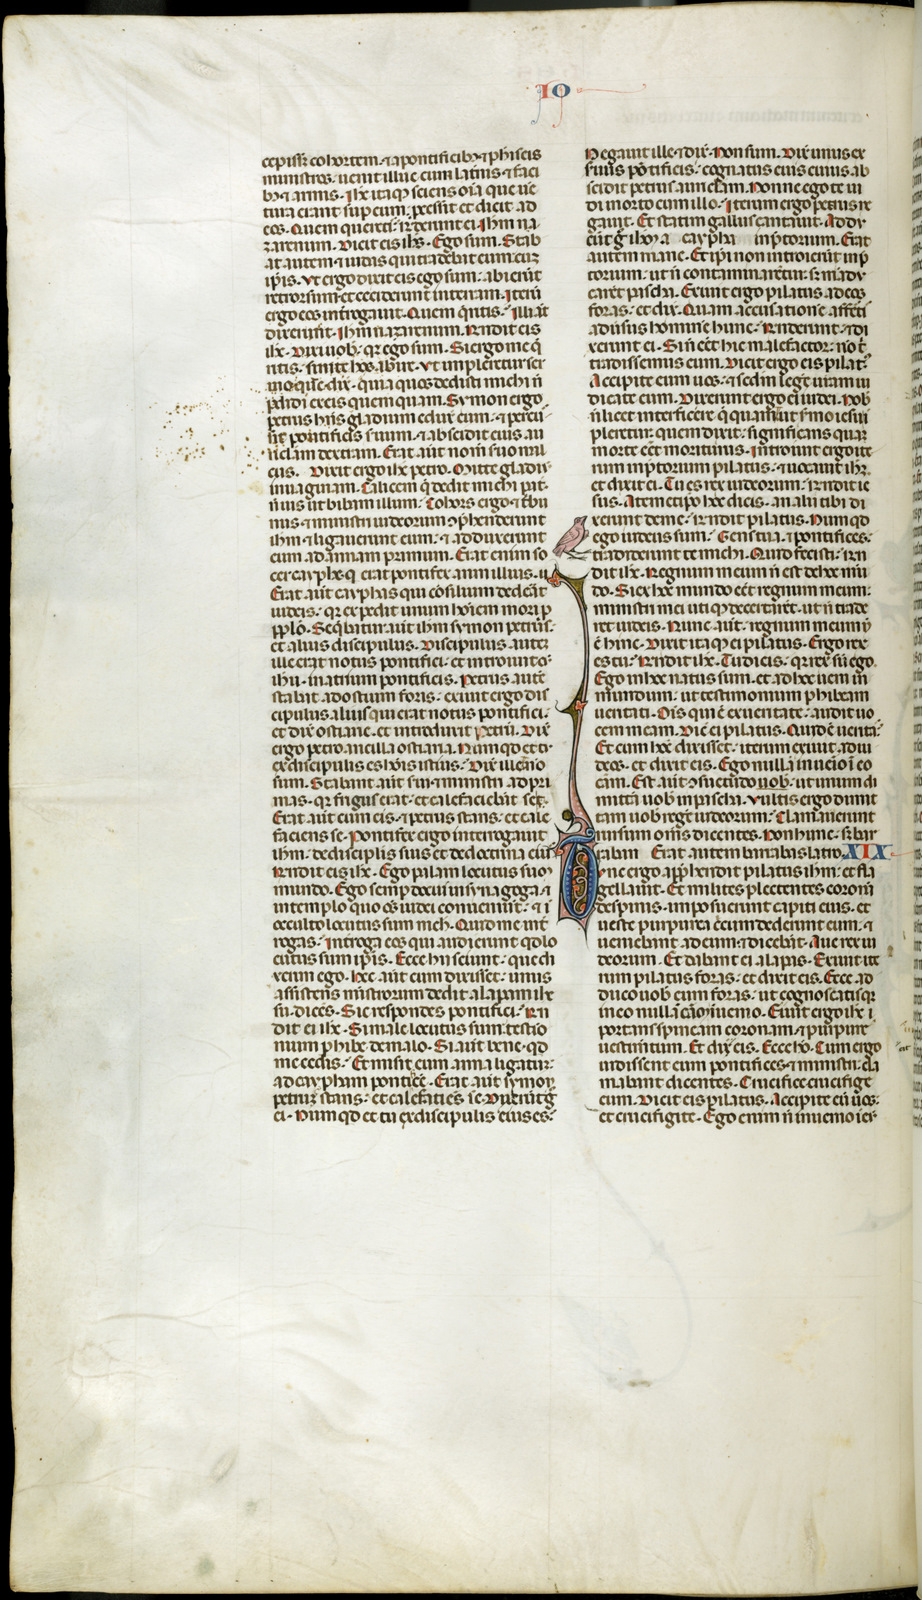 IO
cepiss& cohortem · & a pontificib; & phiseis
ministros: uenit illuc cum latinis & faci
b; & armis · Ihc itaq; sciens oīa que ue
tura erant sup eum · pcessit et dicit ad
eos · Quem queritis: Rnderunt ei · Ihm na
zarenum · Dicit eis ihs · Ego sum · Stab
at autem & iudas qui tradebat eum cuz
ipīs · Vt ergo dixit eis ego sum: abierūt
retrorsum et ceciderunt in terram · Iterū
ergo eos intrgauit · Quem q̄ritis: Illi aūt
dixerunt · Ihm nazarenum · Rndit eis
ihc · Dixi uob: qr ego sum · Si ergo me q̄
ritis: sinite hos abire · Vt impleretur ser
mo que dix · quia quos dedisti michi n̄
pdidi ex eis quemquam · Symon ergo
petrus hns gladium eduxit eum · & percu
sit pontificis seruum · & abscidit eius au
riclam dextram · Erat aūt nom̄ seruo mal
cus · Dixit ergo ihc petro · Mitte gladiū
in uaginam · Calicem q̄ dedit michi pat̄
n̄ uis ut bibam illum: Cohors ergo & tbu
nus & ministri iudeorum ɔphenderunt
ihm & ligauerunt eum: & adduxerunt
eum ad annam primum · Erat enim so
cer cayphe · q̄ erat pontifex anni illius ·
Erat aūt cayphas qui cōsilium dederat
iudeis: qr expedit unum hoīem mori p
pplo · Seq̄batur aūt ihm symon petrus:
et alius discipulus · Discipulus autez
ille erat notus pontifici: et introiuit c̄
ihu · in atrium pontificis · Petrus autē
stabat ad ostium foris: exiuit ergo dis
cipulus alius qui erat notus pontifici:
et dix ostiarie · et introduxit petrū · Dix
ergo petro ancilla ostiaria · Numqd et tu
ex discipulis es hoīs istius: Dix ille · nō
sum · Stabant aūt serui & ministri ad pri
mas · qr frigus erat · et calefaciebāt se:
Erat aūt cum eis · & petrus stans: et cale
faciens se · Pontifex ergo interrogauit
ihm: de disciplis suis et de doctrina eius
Rndit eis ihc · Ego palam locutus sum
mundo · Ego semp docui in synagoga &
in templo quo oēs iudei conueniūt: & i
occulto locutus sum nich · Quid me int
rogas: Introga eos qui audierunt qd lo
cutus sum ipīs · Ecce hii sciunt: que di
xerim ego · Hec aūt cum dixisset: unus
assistens ministrorum dedit alapam ihc
su · dicēs · Sic respondes pontifici: Rn
dit ei ihc · Si male locutus sum: testio
nium phibe de malo · Si aūt bene · qd
me cedis: Et misit eum anna ligatuz
ad caypham pontificē · Erat aūt symon
petrus stans: et calefatiēs se · Dixerūt g̊
ei · Numqd et tu ex discipulis eius es:
Negauit ille & dix̄ · Non sum · Dix̄ unus ex
suis pōtificis: cognatus eius cuius ab
scidit petrus auriclam · Nonne ego te ui
di in orto cum illo: Iterum ergo petrus ne
gauit · Et statim gallus cantauit · Addux
erūt g̊ ihm a caypha in ptorium · Erat
autem mane · Et ipi non introierūt in p
torium · ut n̄ contaminarētur: s; māndu
carēt pascha · Exiuit ergo pilatus ad eos
foras: et dix · Quam accusationē affertis
aduersus hominē hunc: Rnderunt · & di
xerunt ei · Si n̄ eēt hic malefactor: nō t̄
tradissemus eum · Dicit ergo eis pilat;
Accipite eum uos: & scdm legē uram iu
dicate eum · Dixerunt ergo ei iudei · Nob
n̄ licet interficere q̄quam: ut smo iesu i
pleretur quem dixit: significans qua
morte eēt moriturus · Introiuit ergo ite
rum in ptorium pilatus · & uocauit ihz
et dixit ei · Tu es rex iudeorum: Rndit ie
sus · A temetipo hoc dicis · an alii tibi di
xerunt de me: Rndit pilatus · Numqd
ego iudeus sum: Gens tua · & pontifices:
tradiderunt te michi · Quid fecisti: Rn
dit ihc · Regnum meum n̄ est de hoc mū
do · Si ex hoc mundo eēt regnum meum:
ministri mei utiq; decertarēt · ut n̄ trade
ret iudeis · Nunc aūt · regnum meum n̄
ē hinc · Dixit itaq; ei pilatus · Ergo rex
es tu: Rndit ihc · Tu dicis · qr rex sū ego ·
Ego in hoc natus sum · et ad hoc ueni in
mundum: ut testimonium phibeam
ueritati · Oīs qui ē ex ueritate: audit uo
cem meam · Dic̄ ei pilatus · Quid ē uerita:
Et cum hoc dixisset: iterum exiuit ad iu
deos · et dixit eis · Ego nullā inuenio ī eo
cām · Est aūt ɔsuetudo uob: ut unum di
mittā uob in pascha · Vultis ergo dimit
tam uob regē iudeorum: Clamauerunt
rursum oms dicentes · Non hunc · s; bar
raban · Erat autem barrabas latro · XIX
Tunc ergo appħendit pilatus ihm: et fla
gellauit · Et milites plectentes coronā
de spinis · imposuerunt capiti eius · et
ueste purpurea ccumdederunt eum · &
ueniebant ad eum · & dicebāt · Aue rex iu
deorum · Et dabant ei alapas · Exiuit ite
rum pilatus foras: et dixit eis · Ecce ad
duco uob eum foras: ut cognoscatis qr
in eo nullā cām inuenio · Exiuit ergo ihc
portans spineam coronam · & purpureū
uestimtum · Et dix̄ eis · Ecce ho · Cum ergo
uidissent eum pontifices & ministri: cla
mabant dicentes · Crucifige crucifige
eum · Dicit eis pilatus · Accipite eū uos:
et crucifigite · Ego enim n̄ inuenio ī eo